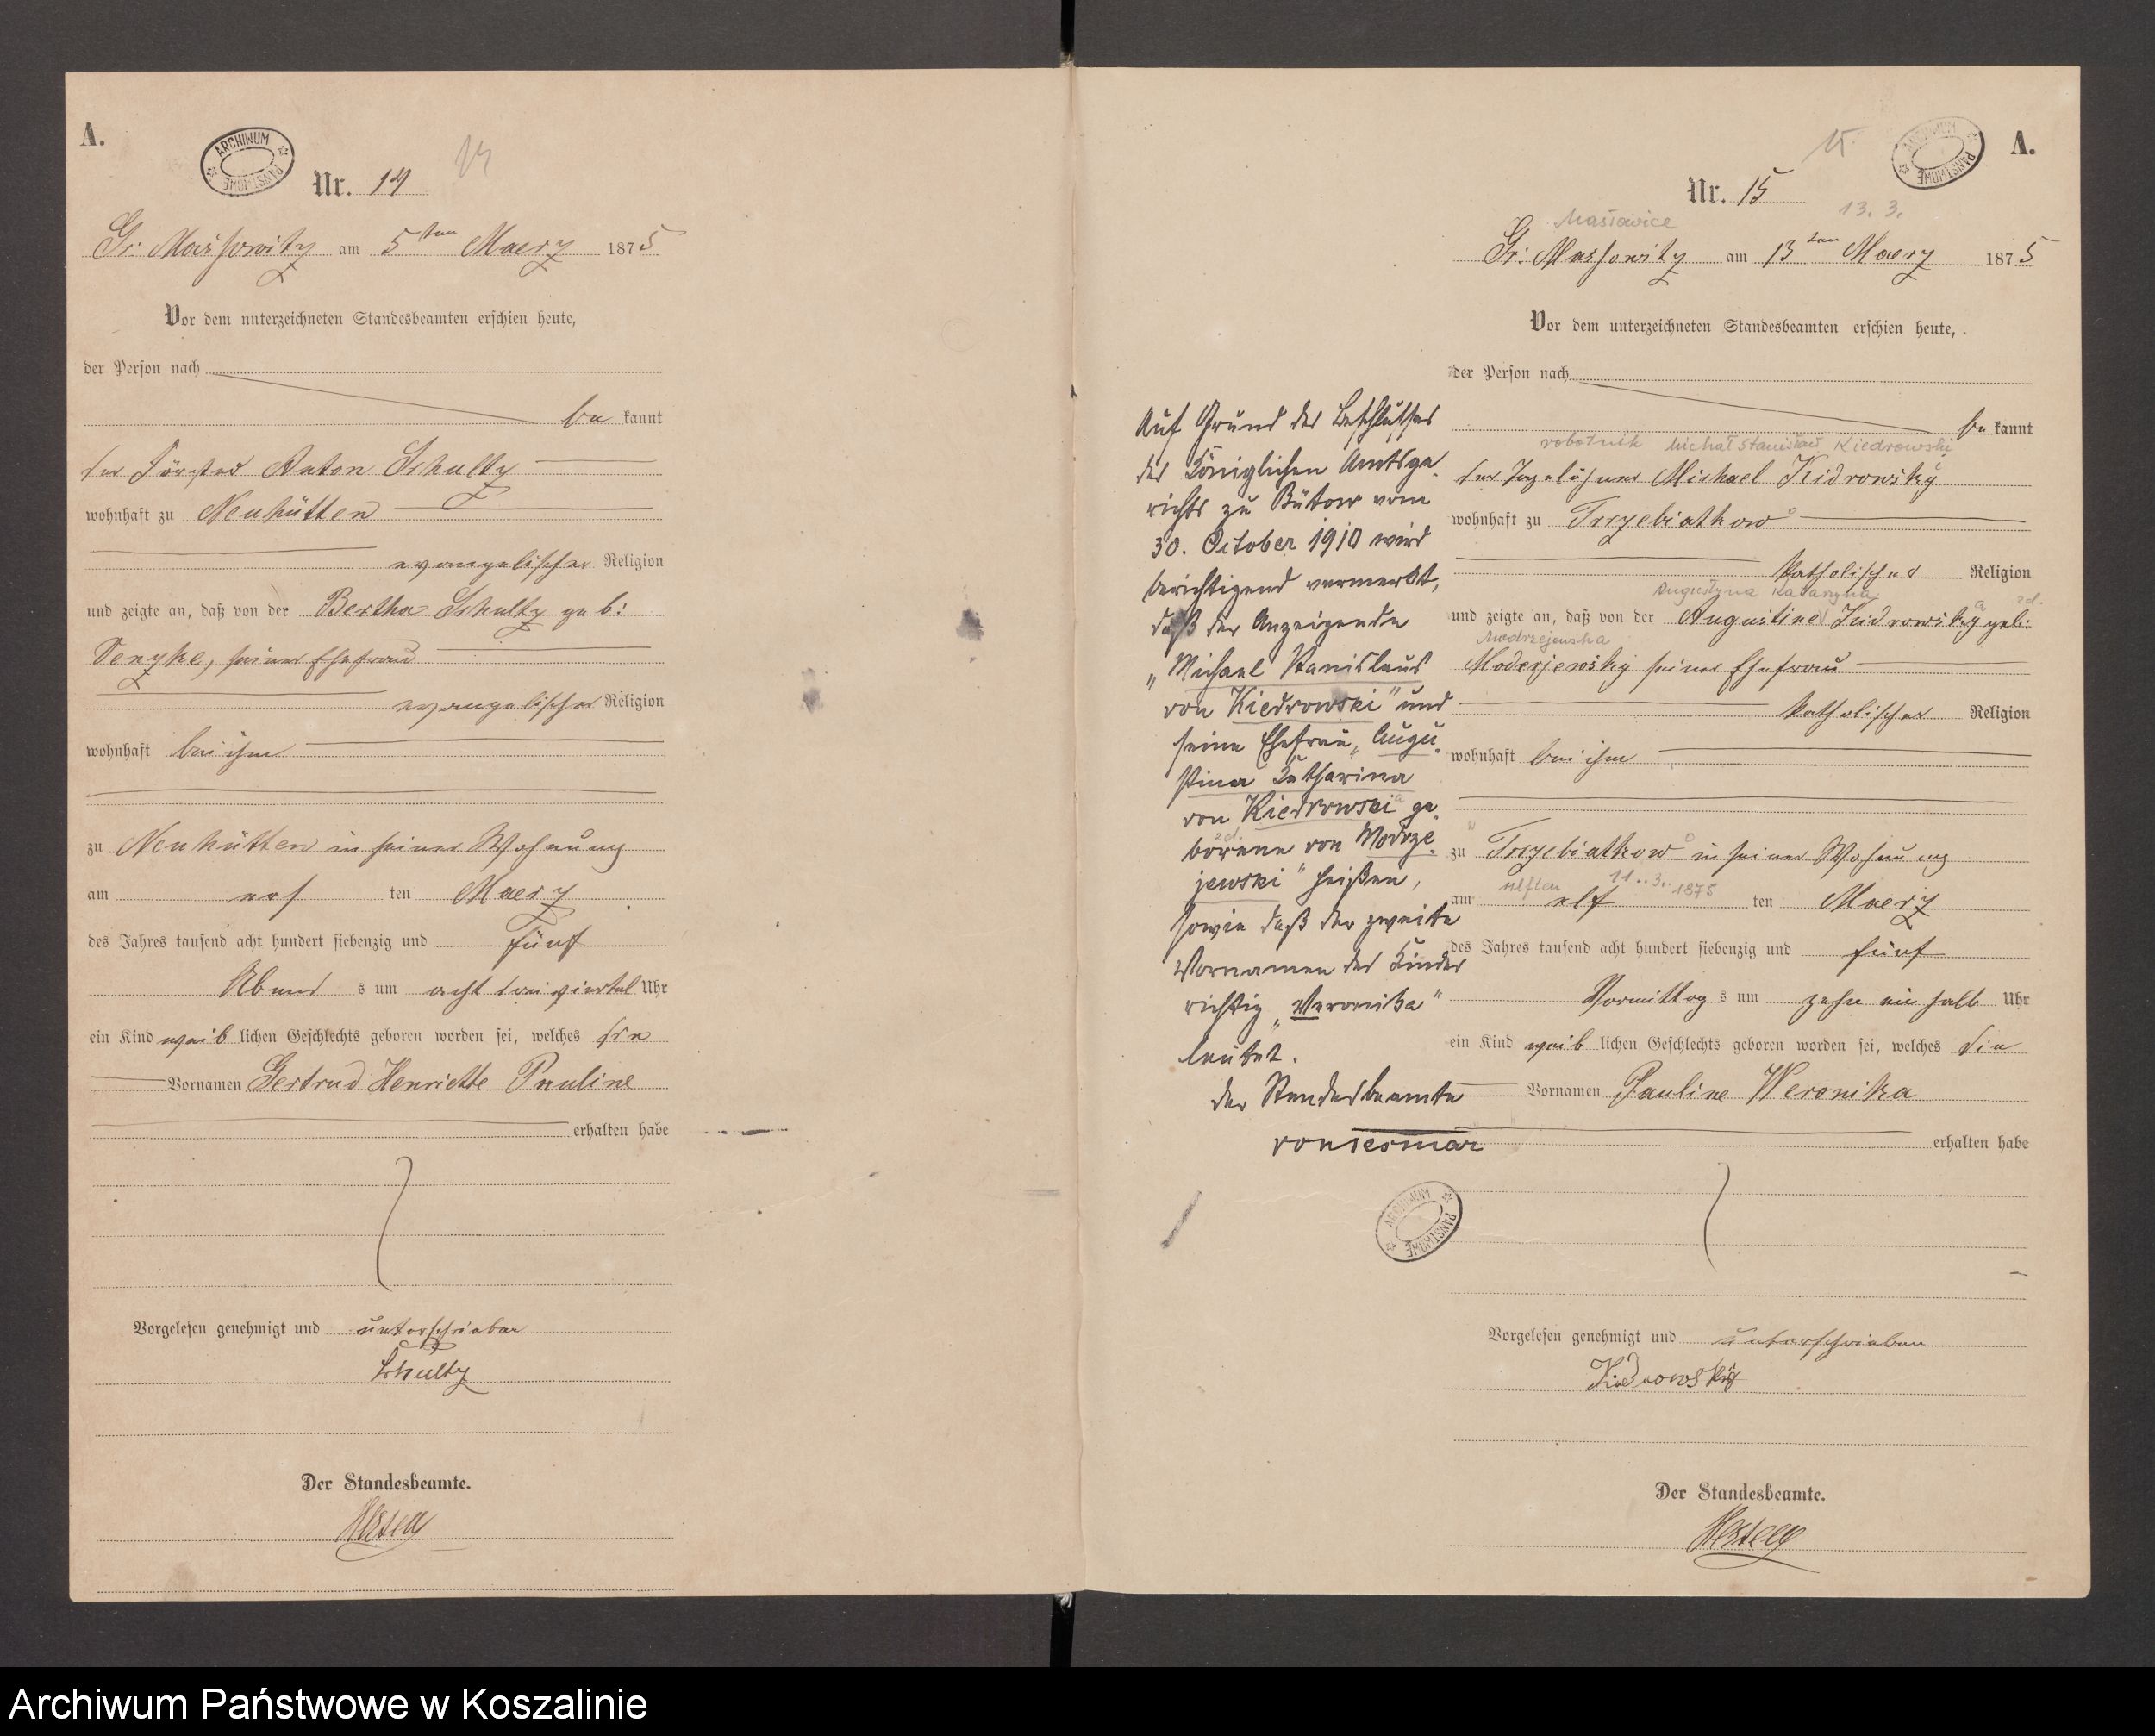 A.
ARCHIWUM PAŃSTWOWE
Nr. 14
14
Gr: Massowitz am 5ten Maerz 1875
Vor dem unterzeichneten Standesbeamten erschien heute,
der Person nach
be kannt
der Förster Anton Schultz
wohnhaft zu Neuhütten
evangelischer Religion
und zeigte an, daß von der Bertha Schultz geb:
seiner Ehefrau
evangelischer Religion
wohnhaft bei ihm
zu Neuhütten in seiner Wohnung
am ten Maerz
des Jahres tausend acht hundert siebenzig und fünf
Abend s um acht dreiviertel Uhr
ein Kind weib lichen Geschlechts geboren worden sei, welches die
Vornamen Gertrud Henriette Pauline
erhalten habe
Vorgelesen genehmigt und unterschrieben
Schultz
Der Standesbeamte.
15
ARCHIWUM PAŃSTWOWE
A.
Nr. 15
Massowice
13. 3.
Gr: Massowitz am 13ten Maerz 1875
Vor dem unterzeichneten Standesbeamten erschien heute,
der Person nach
be kannt
robotnik Michał Stanisław Kiedrowski
der Tagelöhner Michael Kidrowsky
wohnhaft zu Trzebiatkow
katholischer Religion
Augustyna Katarzyna
und zeigte an, daß von der Augustine Kidrowsky geb:
Modrzejewska
Moderjewsky seiner Ehefrau
katholischer Religion
wohnhaft bei ihm
zu Trzebiatkow in seiner Wohnung
elften 11. 3. 1875
am elf ten Maerz
des Jahres tausend acht hundert siebenzig und fünf
Vormittag s um zehn ein halb Uhr
ein Kind weib lichen Geschlechts geboren worden sei, welches die
Vornamen Pauline Weronika
erhalten habe
Vorgelesen genehmigt und unterschrieben
Kiedrowski
Der Standesbeamte.
Auf Grund des Beschlusses
des Königlichen Amtsge-
richts zu Bütow vom
30. October 1910 wird
berichtigend vermerkt,
daß der Anzeigende
„Michael Stanislaus
von Kiedrowski" und
seine Ehefrau „Augu-
stina Katharina
von Kiedrowski ge-
borene von Modrze-
jewski" heißen,
sowie daß der zweite
Vornamen des Kindes
richtig „Veronika"
lautet.
Der Standesbeamte
ARCHIWUM PAŃSTWOWE
Archiwum Państwowe w Koszalinie